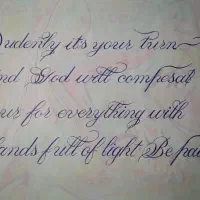 Sudenly it's your turn
and God will compesat
our for everything with
hands full of light, Be pa